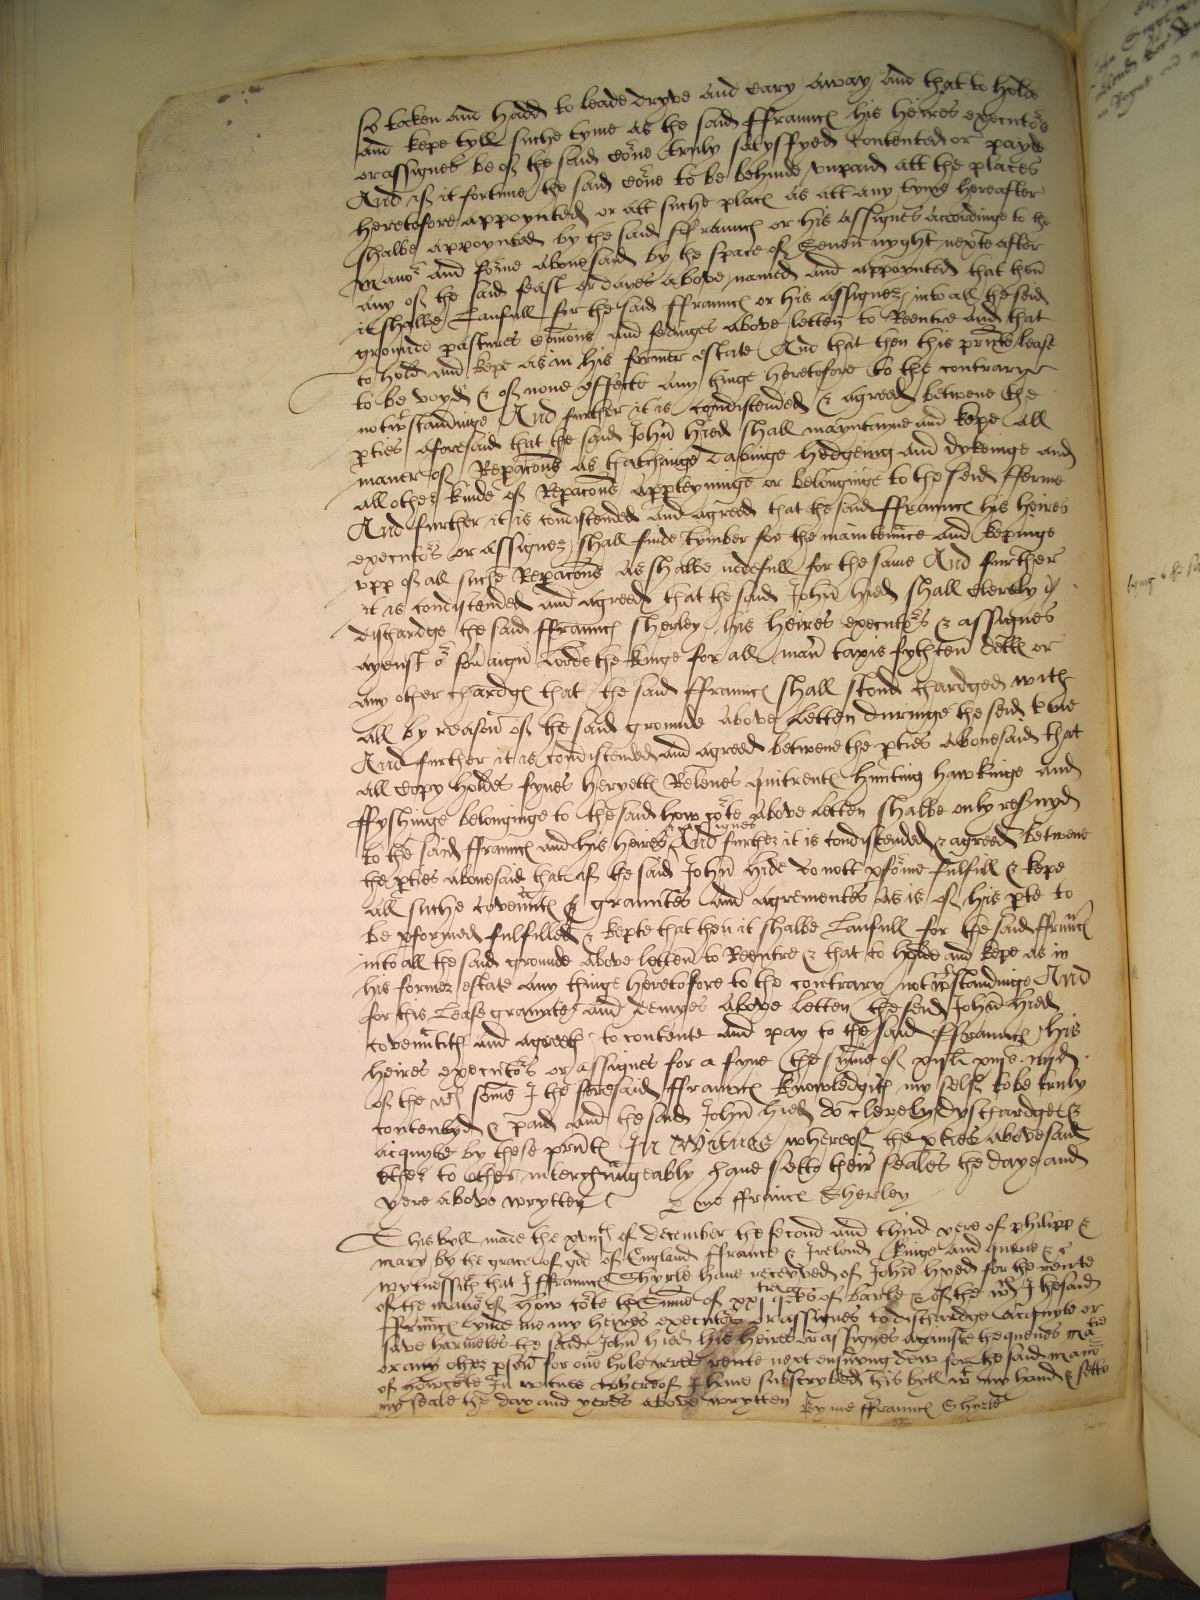 so tocken and hadd to leade dryve and cary away and that to holde
and kepe tyll suche tyme as the said ffrauncs his heires executors
or assignes be of the said corne truly satysfyed contented or payde
And if it fortune the said corne to be behinde unpaid att the places
heretofore appoynted or att suche place as att any tyme hereafter
shalbe appoynted by the said ffrauncs or his assignes accordinge to the
manor and forme abovesaid by the space of Seven nyght nexte after
any of the said feast or dayes above named and appoynted that then
it shalbe Laufull for the said ffrauncs or his assignez into all the seid
grounde pastures comons and fedinges above letten to Reentre and that
to hold and kepe as in his former estate And that then this prnte lease
to be voyde & of none effecte any thinge heretofore to the contrary
notwtstandinge And further it is condistended & agreed betwene the
pties aforesaid that the said John Hied shall mayntayne and kepe all
maner of Repacons as thatchinge dabinge hedgeing and dykeinge and
all other kinde of Repacons apperteyninge or belonginge to the seid fferme
And further it is condistended and agreed that the said ffrauncs his heires
executors or assignez shall finde tymber for the maintenuce and kepinge
upp of all suche Repacons as shalbe nedefull for the same And further
it is condistended and agreed that the said John Hied shall clerely
dischardge the said ffrauncs Sherley his heires executors & assignes
ayenst or sovaign lorde the kinge for all man taxis fyften detts or
any other chardgs that the said ffrauncs shall stond chardged with
all by reason of the said grounde above letten duringe the seid tyme
And further it is condistended and agreed betwene the pties abovesaid that
all copy holdes fynes heryetts Releves quitrents hunting hawkinge and
ffyshinge belonginge to the said how cote above letten shalbe only resrvyd
to the said ffrauncs and his heires & assignes And further it is condistended & agreed betwene
the pties abovesaid that if the said John Hide do nott pforme fulfill & kepe
all suche covennts & grauntes and agrementes as is of his pte to
be pformed fulfilled & kepte that then it shalbe Laufull for the said ffrauncs
into all the said grounde above letten to Reentre & that to holde and kepe as in
his former estate any thinge heretofore to the contrary notwtstandinge And
for this Lease grauntes and demyes above letten the seid John Hied
covenntith and agreeth to contente and pay to the said ffrauncs his
heires executors or assignes for a fyne the sume of
of the wch some I the foresaid ffrauncs knowledgith my self to be truly
contentyd & paid and the said John Hied do clerely dyschardge &
acquyte by these prnts In Witnes whereof the pties abovesaid
ether to other interchaungeably have sette their seales the daye and
yere above wrytten me ffrauncs Sherley
This byll made the xviijth of december the second and third yere of philipp &
mary by the grace of god of England ffrance & Irelond kinge and quene &c
wytnessith that I ffrauncs Shyrle have receyved of John Hyed for the rente
of the manor of How cote the Sume of xxj qrters of barle & of the wch I the said
ffrauncs bynde me my heires executors or assignes to dischardge acquyte or
save harmeles the said John Hied his heires or assignes againste the quenes matie
or any other pson for one hole yeres rente next ensuyng dew for the said manor
of howcote In witnes whereof I have subscrybed this byll wt my hand & sette
my seale the day and yeres above wrytten By me ffrauncs Shyrle